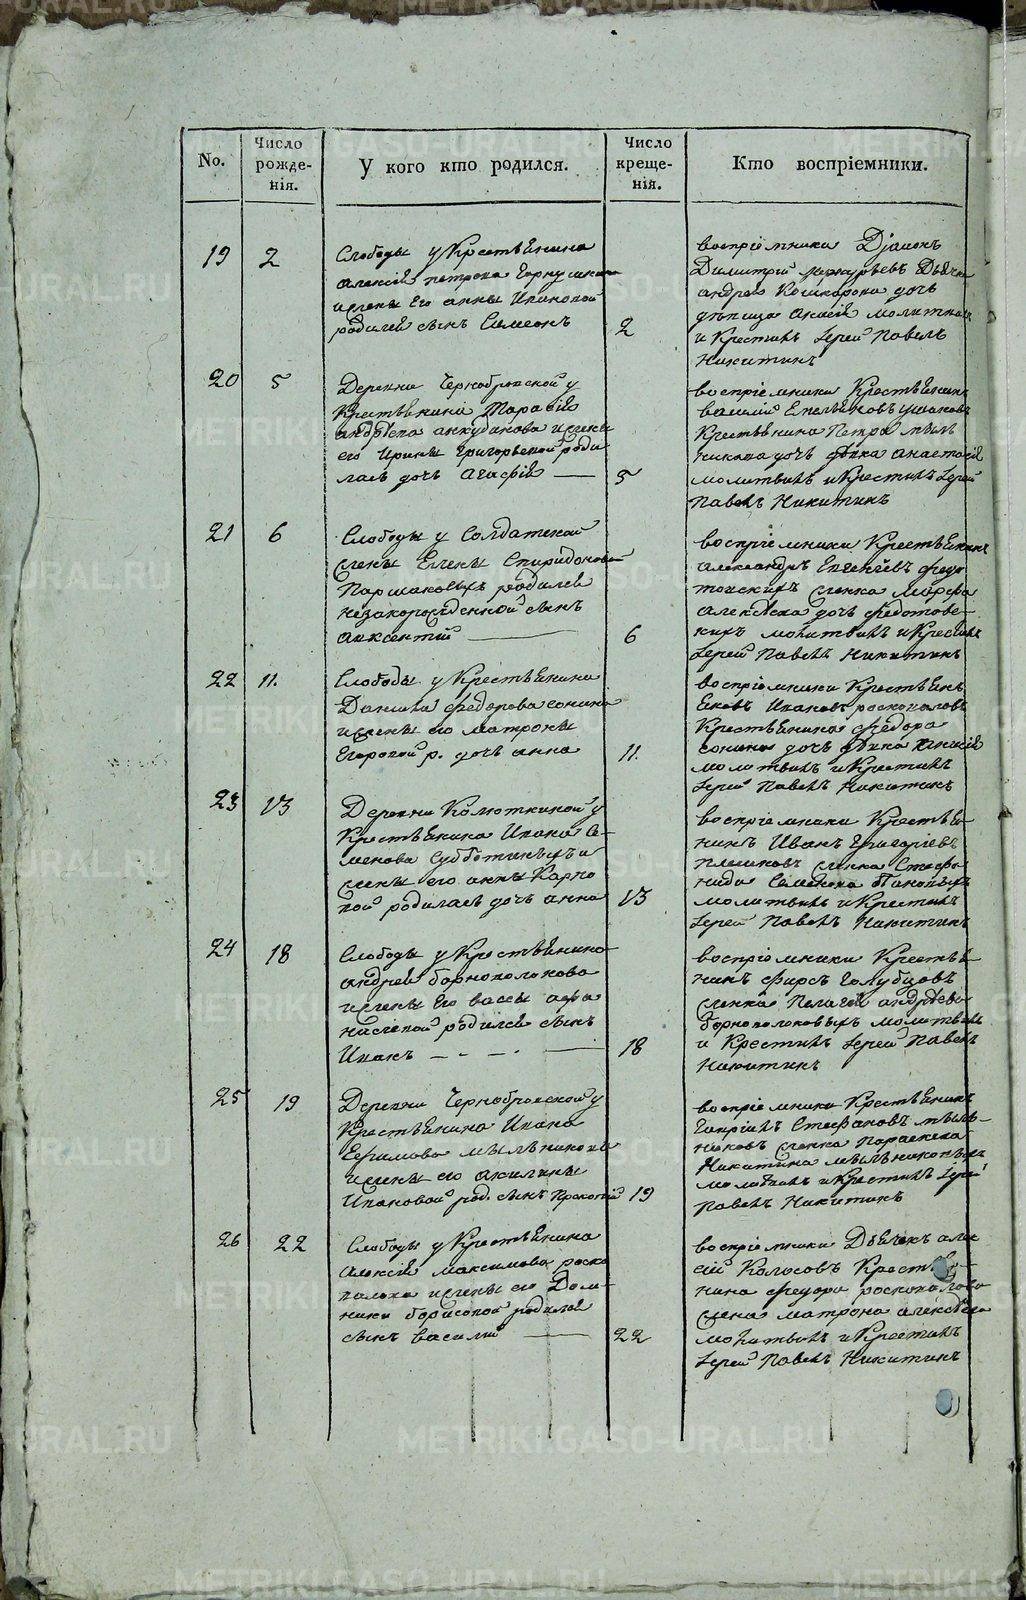 No.
Число рожде-
нія.
У кого кто родился.
Число креще-
нія.
Кто воспріемники.
19
2
Слободы у Крестьянина
алексія петрова
и жены Его анны Ивановой
родился сынъ Симеонъ
2
воспріемники Діаконъ
Димитрій Дьячка
андрея дочь
дѣвица молитвилъ
и Крестилъ Іерей Павелъ
Никитинъ
20
5
Деревни Чернобровской у
Крестьянина Тарасія
андрѣева анкудинова и жены
его Ирины Григорьевой роди
лась дочь Агафія
5
воспріемники Крестьянинъ
василій Емельяновъ ушаковъ
Крестьянина Петра мыль
никова дочь дѣвка анастасія
молитвилъ и Крестилъ Іерей
Павелъ Никитинъ
21
6
Слободы у Солдатской
жены Елены Спиридоновой
Паршаковыхъ родился
незаконорожденной сынъ
авксентій
6
воспріемники Крестьянинъ
александръ Евгеніевъ федо
товскихъ женка Марфа
алексѣева дочь федотовс-
кихъ молитвилъ и Крестилъ
Іерей Павелъ Никитинъ
22
11.
Слободы у Крестьянина
Данила федорова сонина
и жены его матроны
Егоровой р. дочь анна
11.
воспріемники Крестьянъ
Яковъ Ивановъ росковаловъ
Крестьянина федора
сонина дочь дѣвка
молитвилъ и Крестилъ
Іерей Павелъ Никитинъ
23
13
Деревни Колюткиной у
Крестьянина Ивана С-
менова Субботиныхъ и
жены его анны Карпо
вой родилась дочь анна
13
воспріемники Крестья-
нинъ Иванъ Григоріевъ
плешковъ женка Стефа
нида Семенова
молитвилъ и Крестилъ
Іерей Павелъ Никитинъ
24
18
Слободы у Крестьянина
андрея борноволокова
и жены Его вассы афа
насіевой родился сынъ
Иванъ
18
воспріемники Крестья
нинъ фирсъ Голубцовъ
женка Пелагея андрѣева
борноволоковыхъ молитвилъ
и Крестилъ Іерей Павелъ
Никитинъ
25
19
Деревни Чернобровской у
Крестьянина Ивана
Ефимова мыльникова
и жены его акилины
Ивановой род. сынъ Прокопій
19
воспріемники Крестьянинъ
Гавріилъ Стефановъ мыль-
никовъ женка Параскева
Никитина мыльниковыхъ
молитвилъ и Крестилъ Іерей
Павелъ Никитинъ
26
22
Слободы у Крестьянина
алексія максимова роско
валова и жены его Дом-
ники борисовой родился
сынъ василій
22
воспріемники Дьячокъ алек
сій Колосовъ Крестья-
нина федора росковалова
жена матрона алексѣева
молитвилъ и Крестилъ
Іерей Павелъ Никитинъ
METRIKI.GASO-URAL.RU